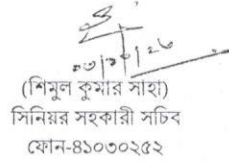 (শিমুল কুমার সাহা)
সিনিয়র সহকারী সচিব
ফোন-৪১০৩০২৫২